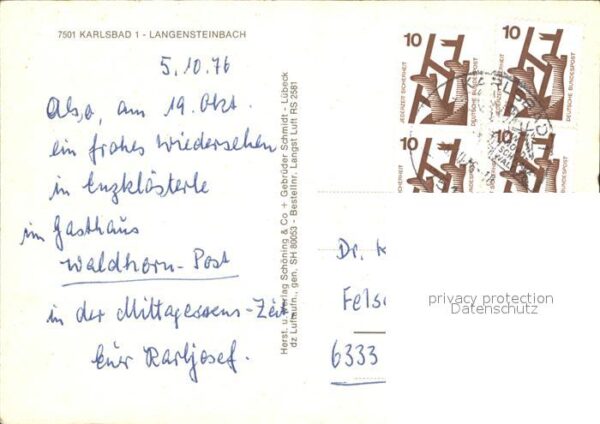 7501 KARLSBAD 1 - LANGENSTEINBACH
5.10.76
Also, am 19. Okt.
ein frohes Wiedersehen
in Enzklösterle
im Gasthaus
Waldhorn-Post
in der Mittagessens-Zeit
Euer Karljosef.
Herst. u. Verlag Schöning & Co + Gebrüder Schmidt - Lübeck
dz Luftaufn., gen. SH 80053 - Bestellnr. Langst Luft RS 2581
10
JEDERZEIT SICHERHEIT
DEUTSCHE BUNDESPOST
10
DEUTSCHE BUNDESPOST
10
SICHERHEIT
10
BUNDESPOST
Dr.
Fels
6333
privacy protection
Datenschutz